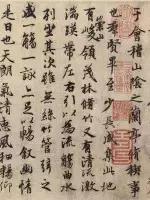 于會稽山陰之蘭亭脩稧事
也群賢畢至少長咸集此地
有崇山峻領茂林脩竹又有清流激
湍暎帶左右引以為流觴曲水
列坐其次雖無絲竹管弦之
盛一觴一詠亦足以暢叙幽情
是日也天朗氣清惠風和暢仰